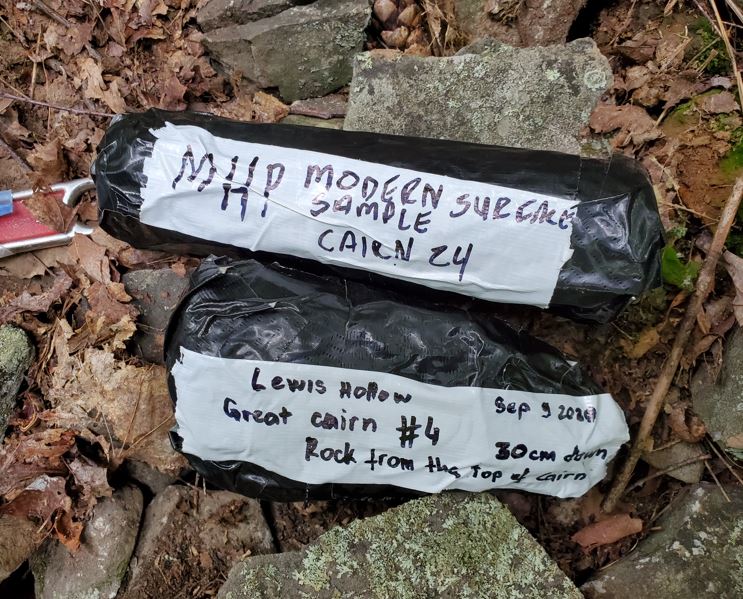 MHP MODERN SURFACE
SAMPLE
CAIRN 24
Lewis Hollow
Great cairn #4
Sep 9
30cm down
Rock from the top of cairn